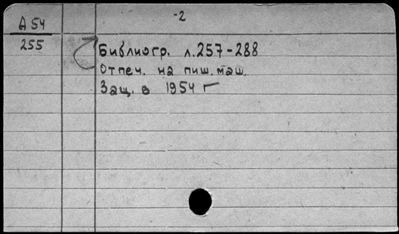 -2
А 54
255
Библиогр. л. 257-288
Отпеч. на пиш. маш.
Защ. в 1954 г